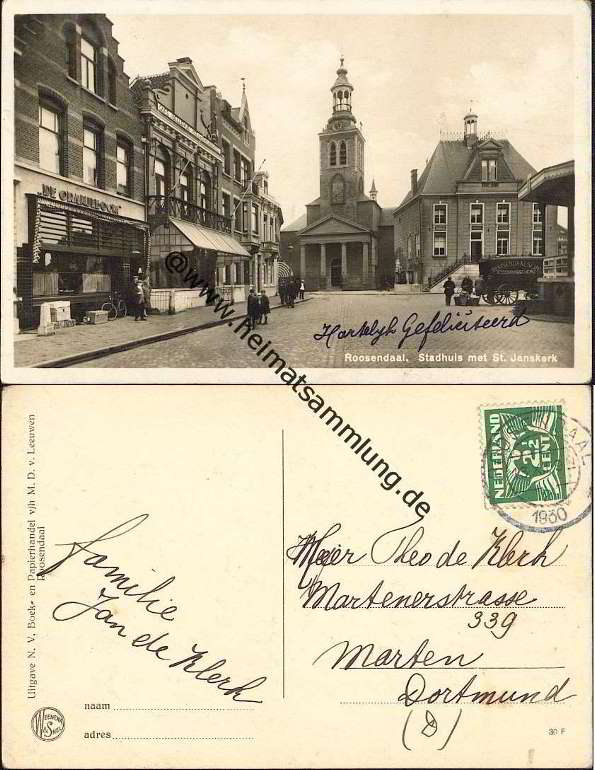 DE ORANJEBOOM
Hartelijk Gefeliciteerd
Roosendaal, Stadhuis met St. Janskerk
@www.heimatsammlung.de
Uitgave N. V. Boek- en Papierhandel v/h M. D. v. Leeuwen
Roosendaal
familie
Jan de Klerk
naam
adres
WEENENK
& SNEL
NEDERLAND
2½
CENT
1930
Theo de Klerk
Martenerstrasse
339
Marten
Dortmund
(D)
30 F